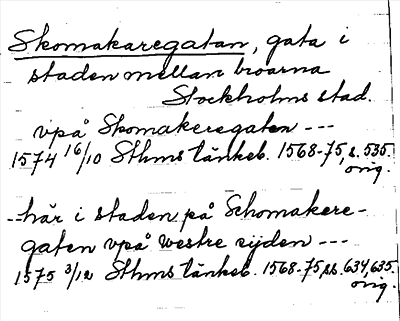 Skomakaregatan, gata i
staden mellan broarna
Stockholms stad.
vpå Skomakeregaten ---
1574 16/10 Sthms tänkeb. 1568-75, s. 535.
orig.
- här i staden på Schomakere-
gaten vpå westre sijden ---
1575 3/12 Sthms tänkeb. 1568-75, ss. 634, 635.
orig.